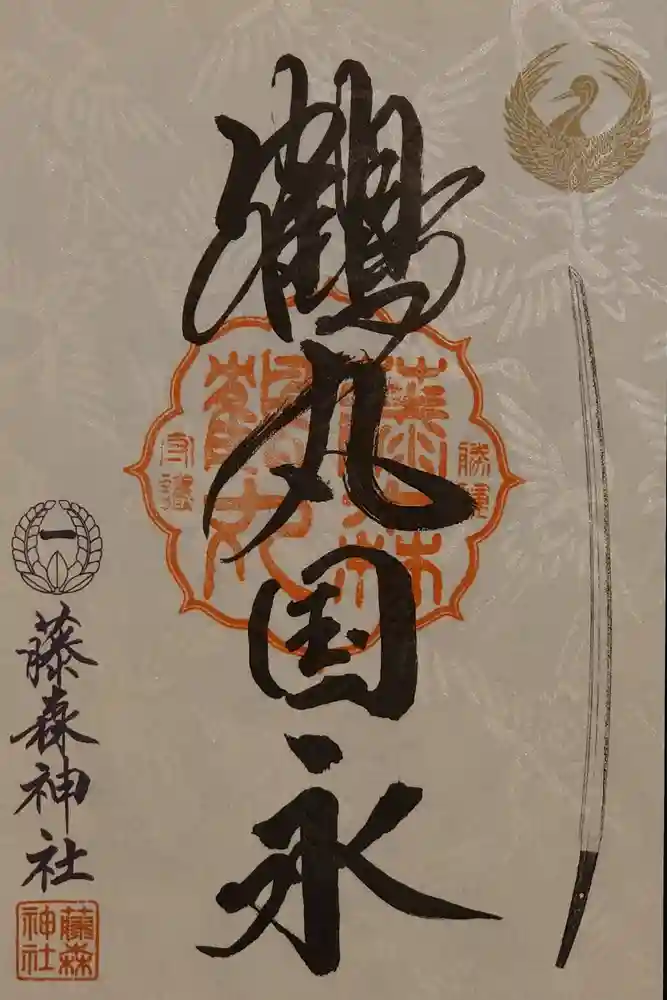 鶴丸国永
藤森 鶴丸
勝運
守護
一
藤森神社
藤森神社